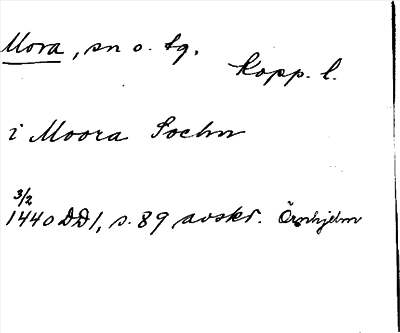 Mora, sn o. tg.
Kopp. l.
i Moora Sochn
3/2
1440 DD1, s. 89 avskr. Örnhjelm